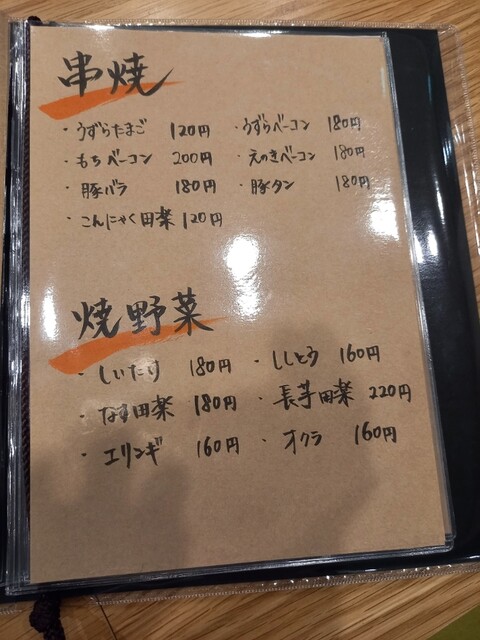 串焼
・うずらたまご 120円 ・うずらベーコン 180円
・もちベーコン 200円 ・えのきベーコン 180円
・豚バラ 180円 ・豚タン 180円
・こんにゃく田楽 120円
焼野菜
・しいたけ 180円 ・ししとう 160円
・なす田楽 180円 ・長芋田楽 220円
・エリンギ 160円 ・オクラ 160円